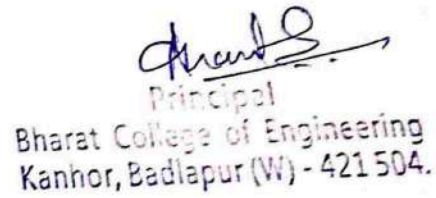 Principal
Bharat College of Engineering
Kanhor, Badlapur (W) - 421 504.